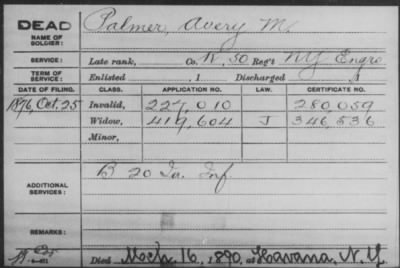 DEAD
NAME OF SOLDIER:
Palmer, Avery M.
SERVICE:
Late rank, Co. 50 Reg't NY Engrs
TERM OF SERVICE:
Enlisted , 1 Discharged , 1
DATE OF FILING. CLASS. APPLICATION NO. LAW. CERTIFICATE NO.
Invalid, 224,010 280,059
1896, Oct. 25 Widow, 419,604 J 346,536
Minor,
ADDITIONAL SERVICES:
B 20 Inf
REMARKS:
Died Mach 16, 1890, at Havana, N.Y.